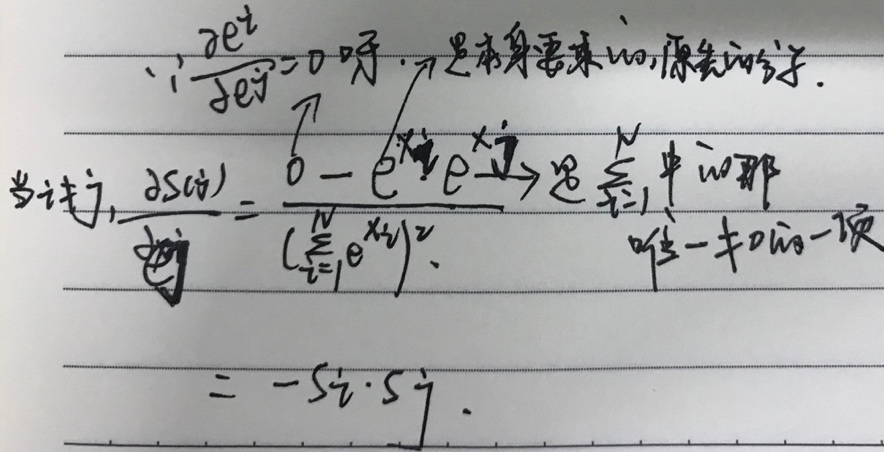 ∵ ∂eⁱ/∂eʲ = 0 呀. → 是本身要乘的,原先的分子.
当i≠j, ∂S(i)/∂ = (0 - e^{xi} e^{xj}) / (∑_{i=1}^{N} e^{xi})². → 是 ∑_{i=1}^{N} 中的那
唯一≠0的一项
= -Si·Sj.